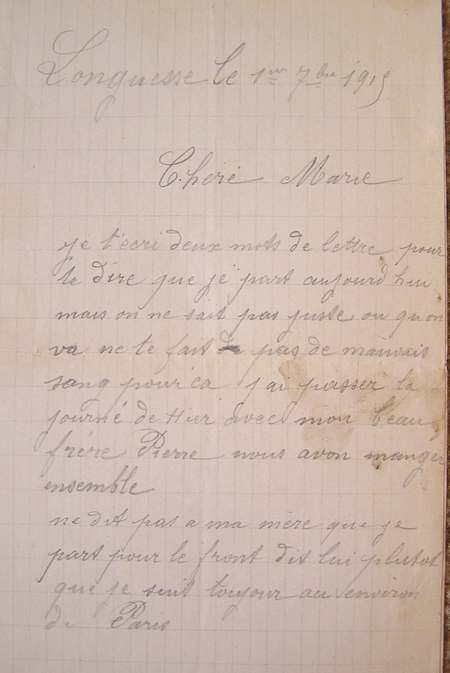 Longuesse le 1er 7bre 1915
Cheré Marie
je t'écri deux mots de lettre pour
te dire que je part aujourd'hui
mais on ne sait pas juste ou qu'on
va ne te fait pas de mauvais
sang pour ca j'ai passer la
journé de Hier avec mon beau
frère Pierre nous avon manger
ensemble
ne dit pas a ma mère que je
part pour le front dit lui plutot
que je suit toujour au environ
de Paris